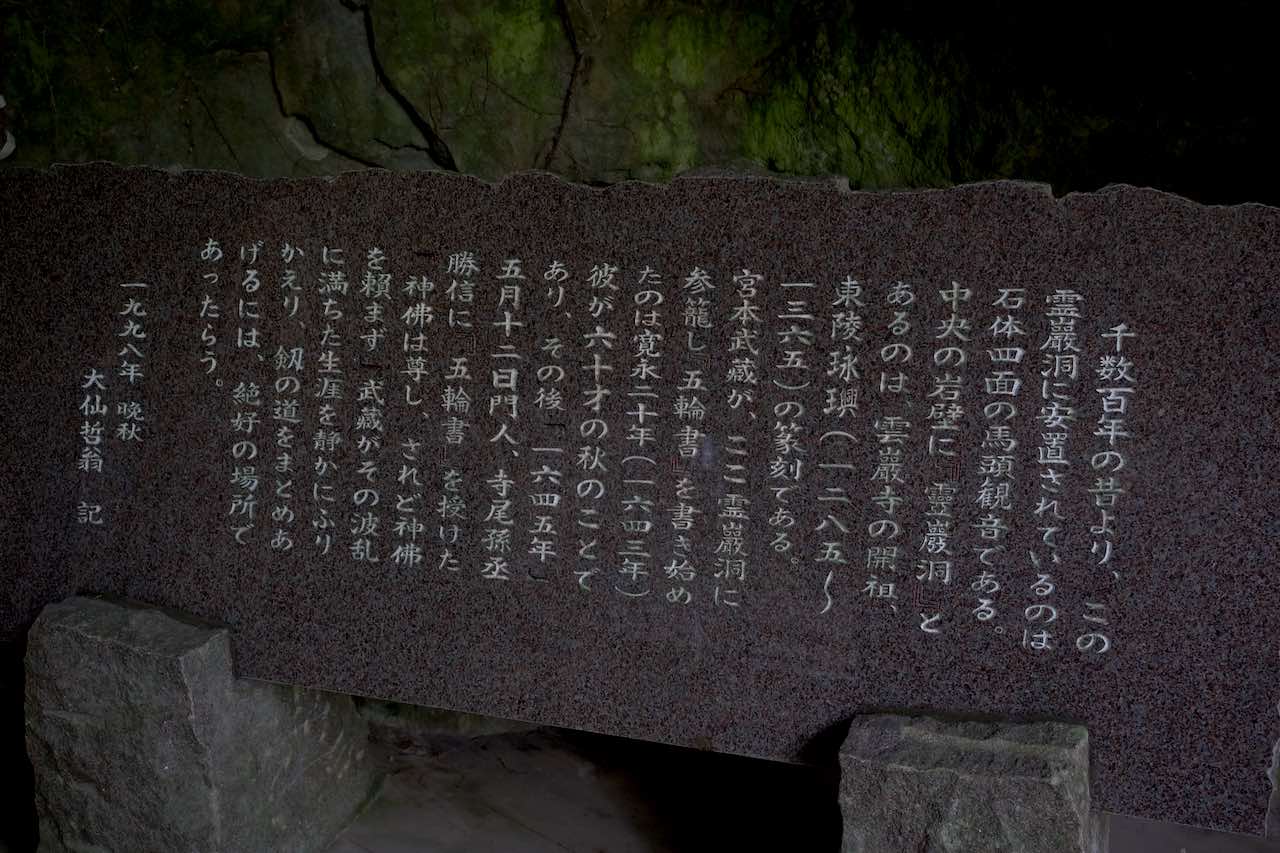 千数百年の昔より、この
霊巖洞に安置されているのは
石体四面の馬頭観音である。
中央の岩壁に『靈巖洞』と
あるのは、雲巖寺の開祖、
東陵琢璵（一二八五〜
一三六五）の篆刻である。
宮本武蔵が、ここ霊巖洞に
参籠し『五輪書』を書き始め
たのは寛永二十年（一六四三年）
彼が六十才の秋のことで
あり、その後「一六四五年」
五月十二日門人、寺尾孫丞
勝信に『五輪書』を授けた
「神佛は尊し、されど神佛
を頼まず」武蔵がその波乱
に満ちた生涯を静かにふり
かえり、剱の道をまとめあ
げるには、絶好の場所で
あったらう。
一九九八年 晩秋
大仙哲翁 記